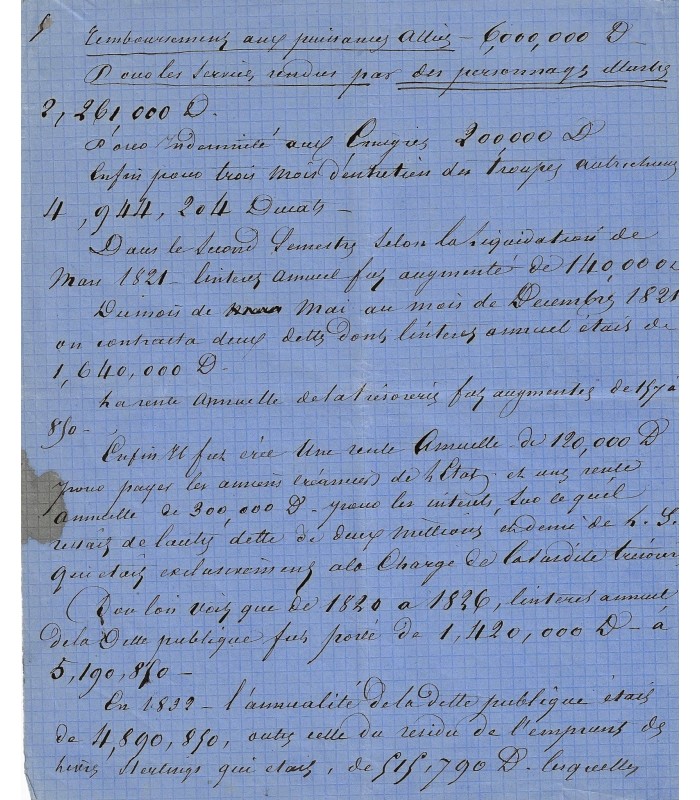 5 Remboursement aux puissances Alliés – 6,000,000 D
Pour les Services rendus par des personnages Illustres
2,261,000 D.
Pour Indemnité aux Emigrés 200,000 D
Enfin pour trois mois d'entretien des Troupes autrichiennes
4,944,204 Ducats –
Dans le Second Semestre Selon la liquidation de
Mars 1821 – l'interet Annuel fut augmenté de 140,000
Du mois de Mai au mois de Decembre 1821
on contracta deux dettes dont l'interet annuel étais de
1,640,000 D –
La rente Annuelle de la trésorerie fut augmentés de 157 à
850 –
Enfin Il fut crée Une rente Annuelle de 120,000 D
pour payer les anciens créanciers de l'Etat, et une rente
annuelle de 300,000 D – pour les interets, sur ce quil
restait de l'autre dette de deux millions et demie de L. S.
qui etais exclusivement a la Charge de la Susdite trésorerie
Dou lon vois que de 1820 a 1826, l'interet annuel
de la Dette publique fut porté de 1,420,000 D – à
5,190,850 –
En 1832 – l'annualité de la dette publique étais
de 4,890,850, outre celle du residu de l'emprunt des
livres Sterlings qui etais, de 515,790 D. lesquelles